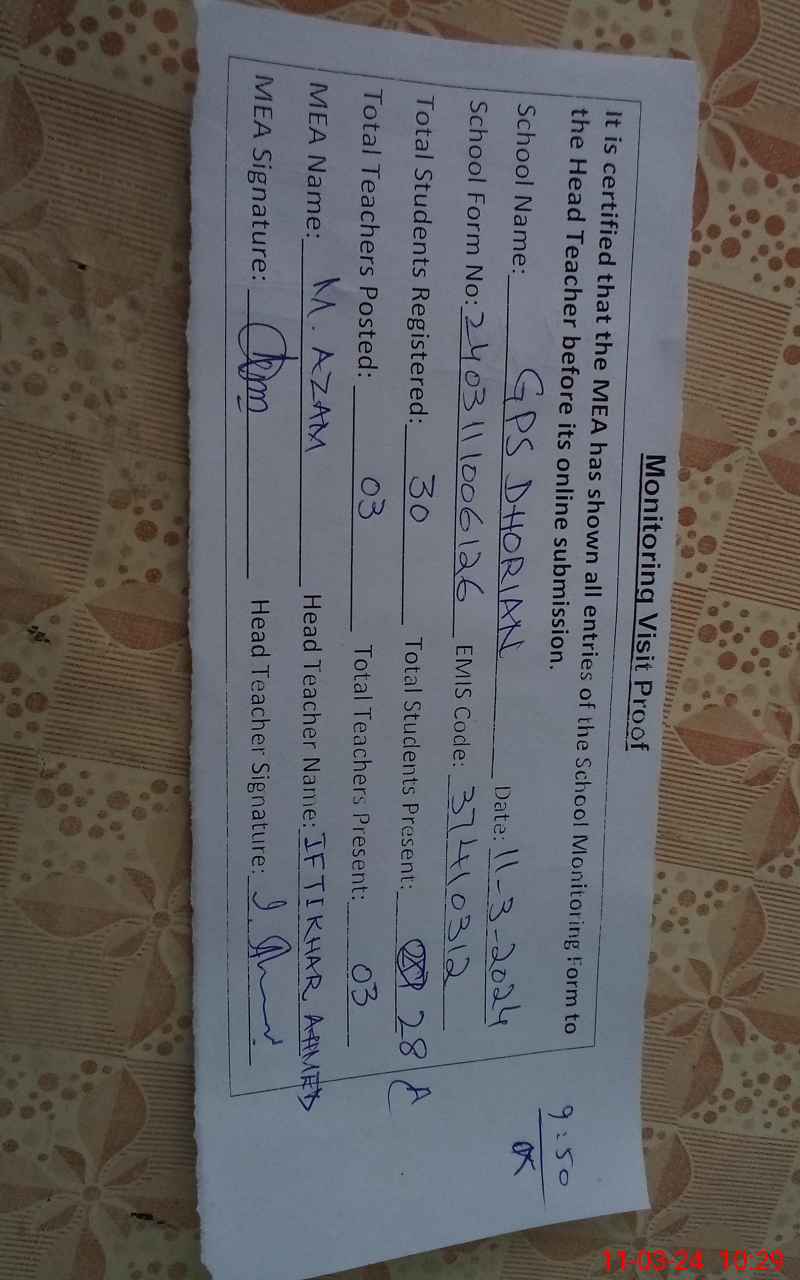 Monitoring Visit Proof
It is certified that the MEA has shown all entries of the School Monitoring Form to
the Head Teacher before its online submission.
School Name: GPS DHORIAN Date: 11-3-2024
School Form No: 240311006126 EMIS Code: 37410312
Total Students Registered: 30 Total Students Present: 28
Total Teachers Posted: 03 Total Teachers Present: 03
MEA Name: M. AZAM Head Teacher Name: IFTIKHAR AHMED
MEA Signature: Head Teacher Signature:
9:50
11-03-24 10:29